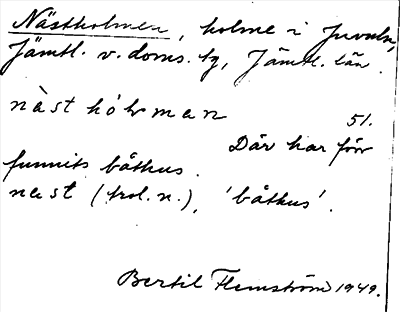 Nästholmen, holme i Juveln,
Jämtl. v. doms. tg, Jämtl. län.
nàst hól men
51.
Där har förr
funnits båthus.
nast (trol. n.), 'båthus'.
Bertil Flemström 1949.